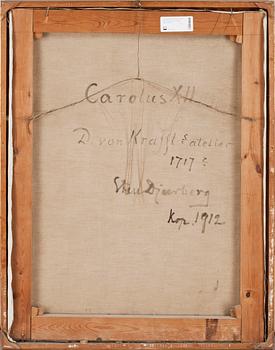 Carolus XII
D. von Krafft's atelier
1717
Djurberg
Kop. 1912